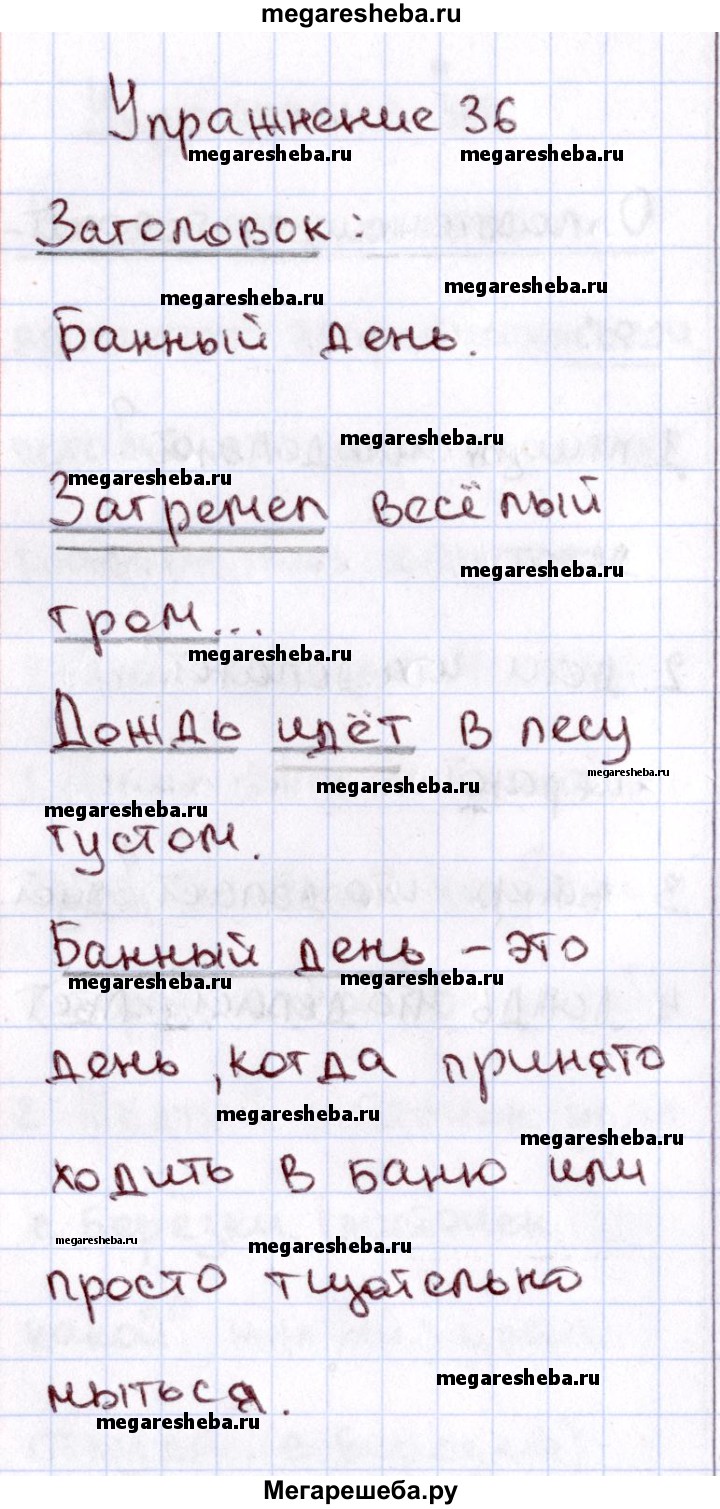 megaresheba.ru
Упражнение 36
megaresheba.ru megaresheba.ru
Заголовок:
megaresheba.ru megaresheba.ru
Банный день.
megaresheba.ru
megaresheba.ru
Загремел весёлый
megaresheba.ru
гром...
megaresheba.ru
Дождь идёт в лесу
megaresheba.ru
megaresheba.ru
megaresheba.ru
густом.
Банный день – это
megaresheba.ru megaresheba.ru
день, когда принято
megaresheba.ru
megaresheba.ru
ходить в баню или
megaresheba.ru megaresheba.ru
просто тщательно
megaresheba.ru
мыться.
megaresheba.ru
Мегарешеба.ру